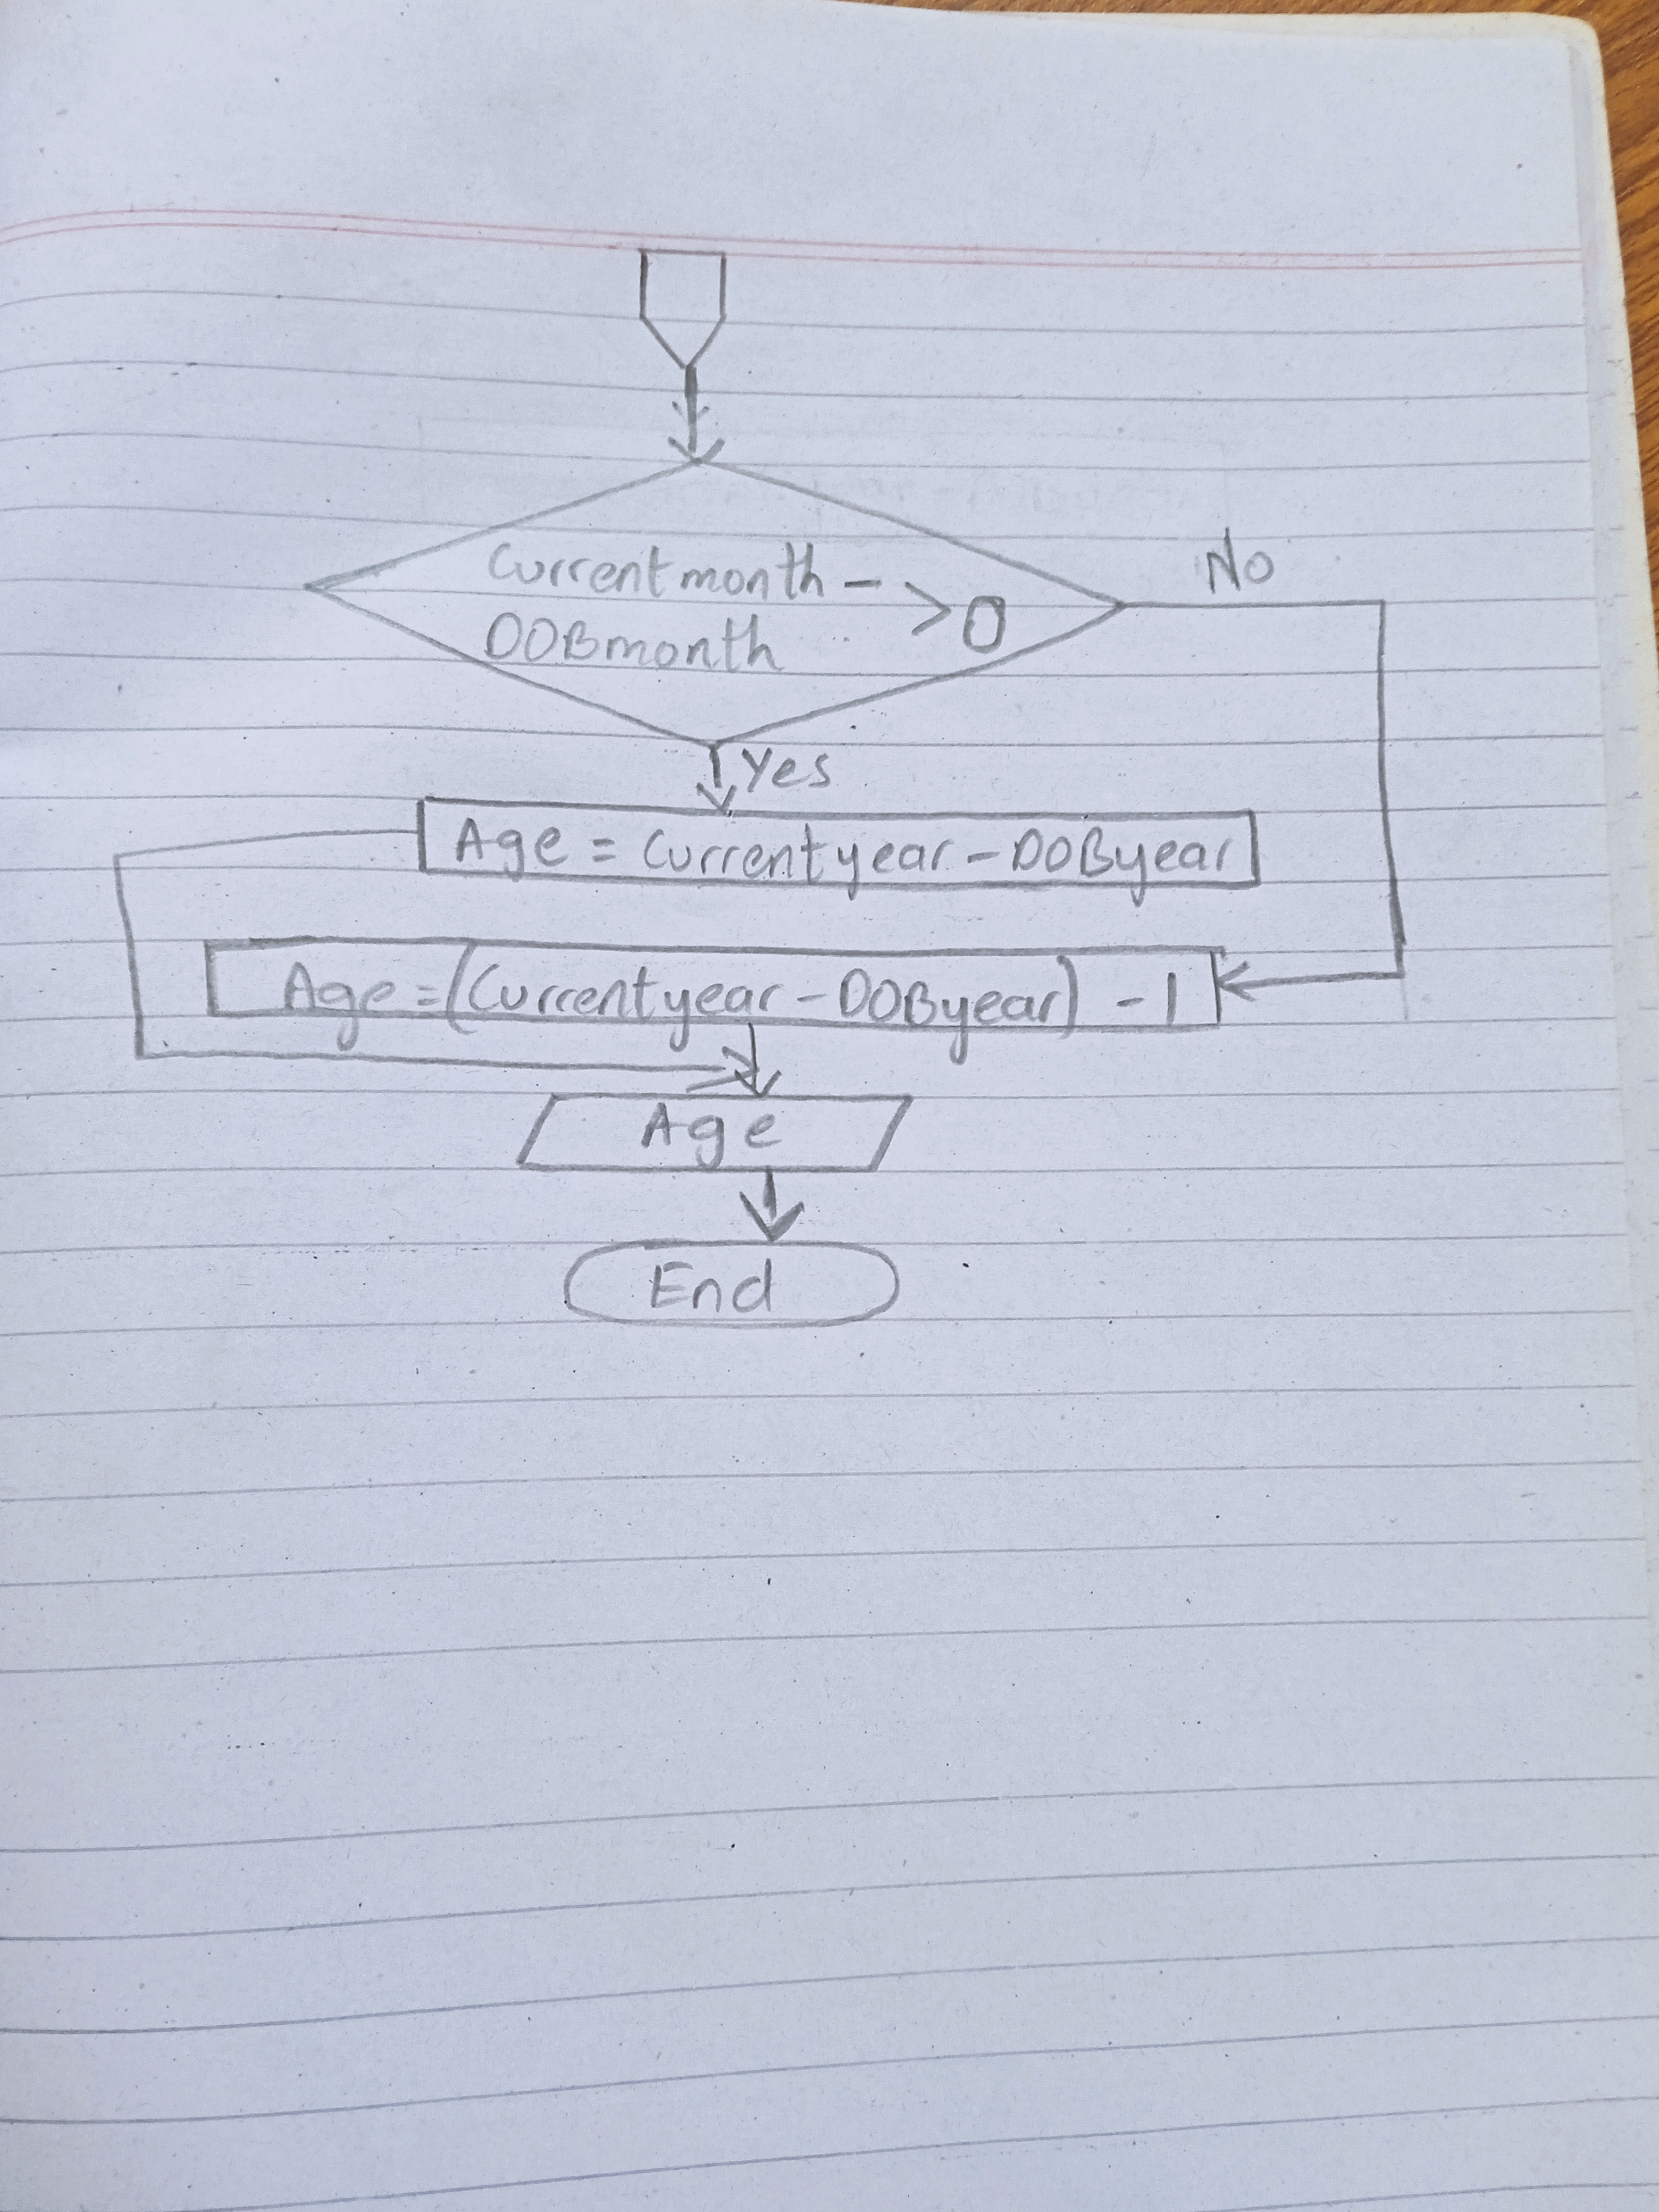 Currentmonth -
DOBmonth > 0
No
Yes
Age = Currentyear - DOByear
Age = (Currentyear - DOByear) - 1
Age
End